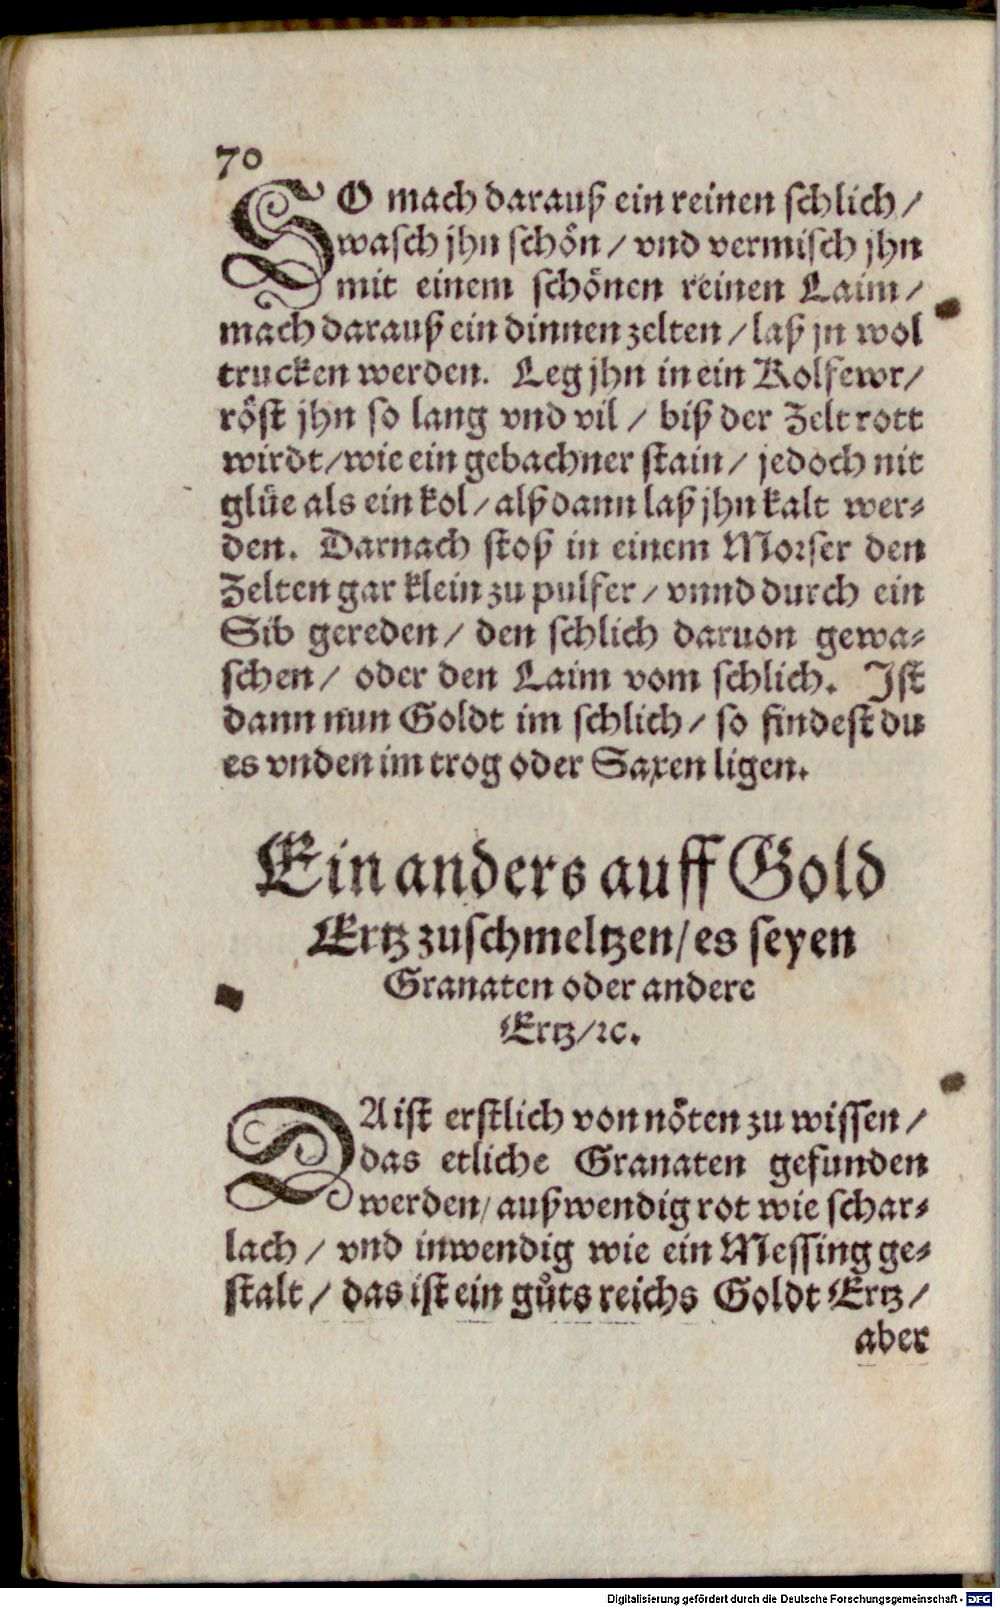 70
SO mach darauß ein reinen schlich /
wasch jhn schön / vnd vermisch jhn
mit einem schönen reinen Laim /
mach darauß ein dinnen zelten / laß jn wol
trucken werden. Leg jhn in ein Kolfewr /
röst jhn so lang vnd vil / biß der Zelt rott
wirdt / wie ein gebachner stain / jedoch nit
glüe als ein kol / alß dann laß jhn kalt wer⸗
den. Darnach stoß in einem Morser den
Zelten gar klein zu pulfer / vnnd durch ein
Sib gereden / den schlich daruon gewa⸗
schen / oder den Laim vom schlich. Ist
dann nun Goldt im schlich / so findest du
es vnden im trog oder Saxen ligen.
Ein anders auff Gold
Ertz zuschmeltzen / es seyen
Granaten oder andere
Ertz / ꝛc.
DA ist erstlich von nöten zu wissen /
das etliche Granaten gefunden
werden / außwendig rot wie schar⸗
lach / vnd inwendig wie ein Messing ge⸗
stalt / das ist ein gůts reichs Goldt Ertz /
aber
Digitalisierung gefördert durch die Deutsche Forschungsgemeinschaft - DFG